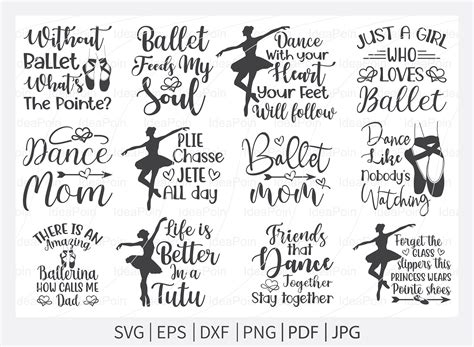 Without
Ballet
What's
The Pointe?
Ballet
Feeds My
Soul
Dance
with your
Heart
Your Feet
Will follow
JUST A GIRL
WHO
LOVES
Ballet
Dance
Mom
PLIE
Chasse
JETE
All day
Ballet
mom
Dance
Like
Nobody's
Watching
THERE IS AN
Amazing
Ballerina
HOW CALLS ME
Dad
Life is
Better
In a
Tutu
Friends
that
Dance
Together
Stay together
Forget the
GLASS
slippers this
PRINCESS WEARS
Pointe shoes
SVG|EPS|DXF|PNG|PDF|JPG